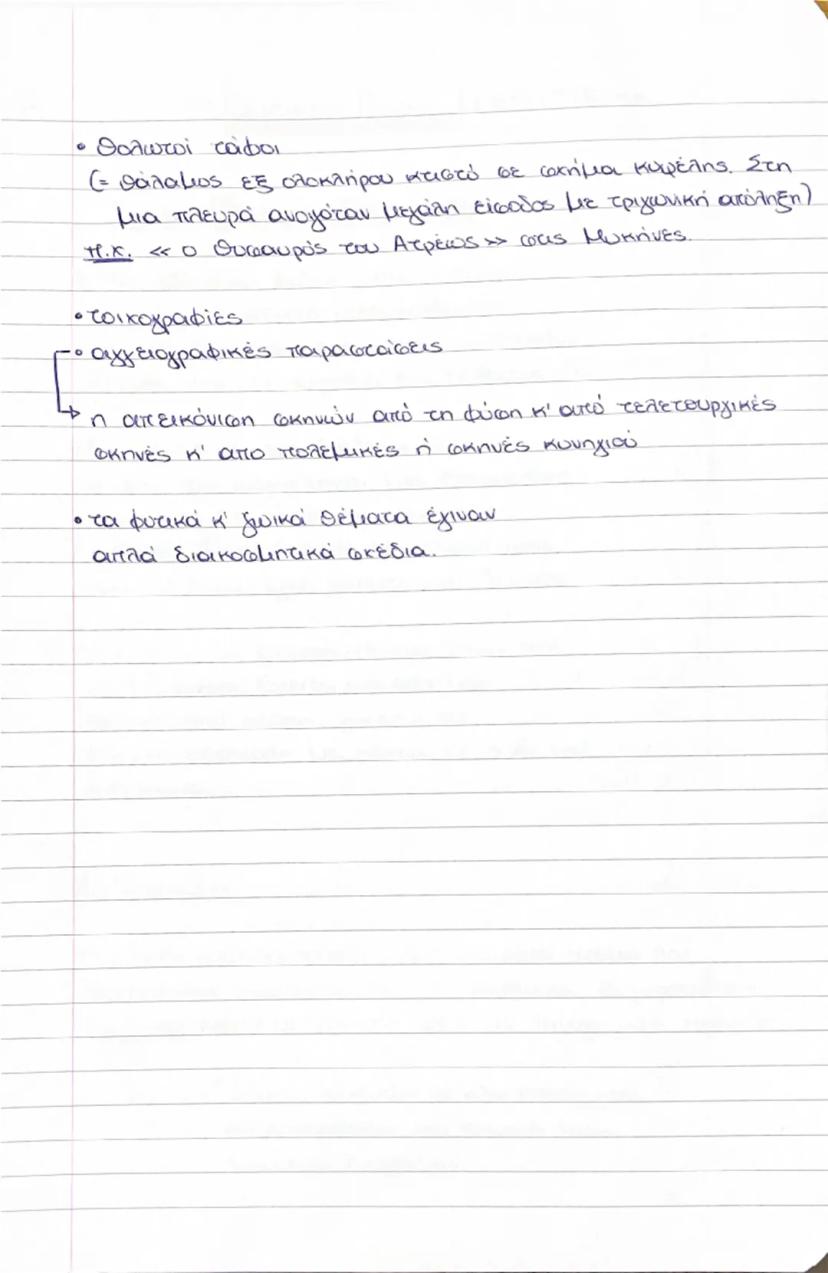 • Θολωτοί τάφοι
(= θάλαμος εξ ολοκλήρου κτιστό σε σχήμα κυψέλης. Στη
μια πλευρά ανοιγόταν μεγάλη είσοδος με τριγωνική απόληξη)
π.χ. << ο Θυσαυρός του Ατρέως >> στις Μυκήνες.
• τοιχογραφίες
• αγγειογραφικές παραστάσεις
→ η απεικόνιση σκηνών από τη φύση κ' από τελετουργικές
σκηνές κ' απο πολεμικές ή σκηνές κυνηγιού
• τα φυτικά κ' ζωικά θέματα έγιναν
απλά διακοσμητικά σχέδια.